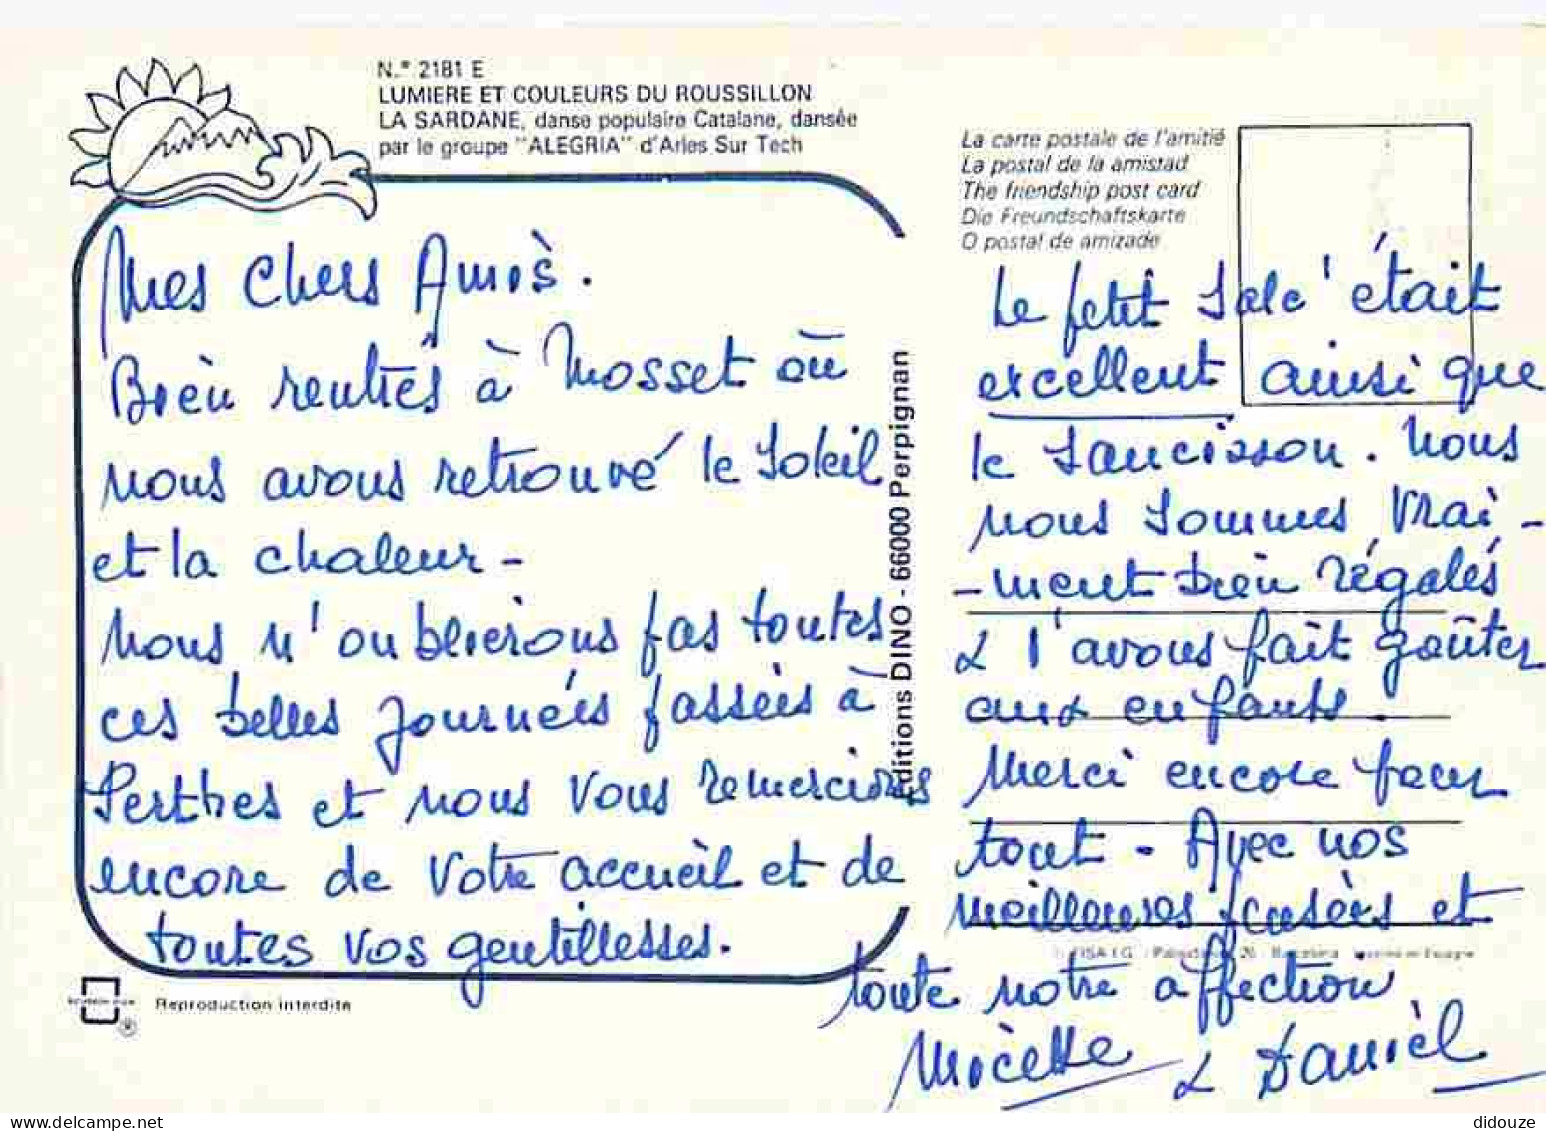 N.° 2181 E
LUMIERE ET COULEURS DU ROUSSILLON
LA SARDANE, danse populaire Catalane, dansée
par le groupe "ALEGRIA" d'Arles Sur Tech
La carte postale de l'amitié
La postal de la amistad
The friendship post card
Die Freundschaftskarte
O postal de amizade
Mes Chers Amis.
Bien rentrés à Mosset où
nous avons retrouvé le soleil
et la chaleur -
nous n'oublierons pas toutes
ces belles journées passées à
Perthes et nous vous remercions
encore de votre accueil et de
toutes vos gentillesses.
Editions DINO - 66000 Perpignan
Le petit salé était
excellent ainsi que
le saucisson. Nous
nous sommes vrai-
-ment bien régalés
& l'avons fait goûter
aux enfants.
Merci encore pour
tout - Avec nos
meilleures pensées et
toute notre affection
& Daniel
Reproduction interdite
didouze